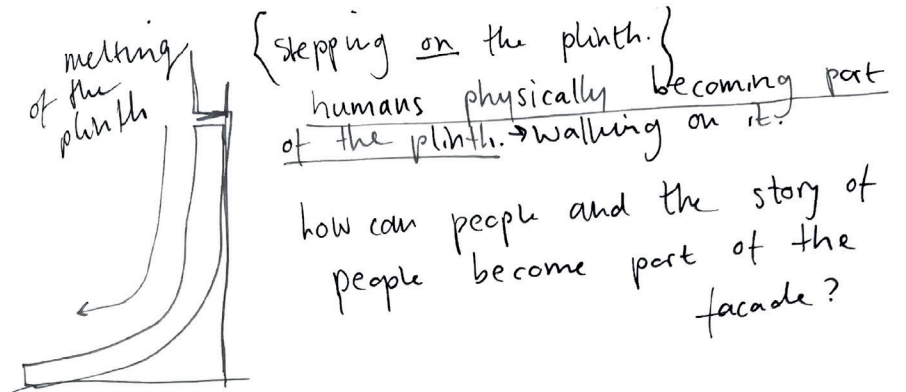 melting
of the
plinth
{stepping on the plinth.}
humans physically becoming part
of the plinth. → walking on it?
how can people and the story of
people become part of the
facade?